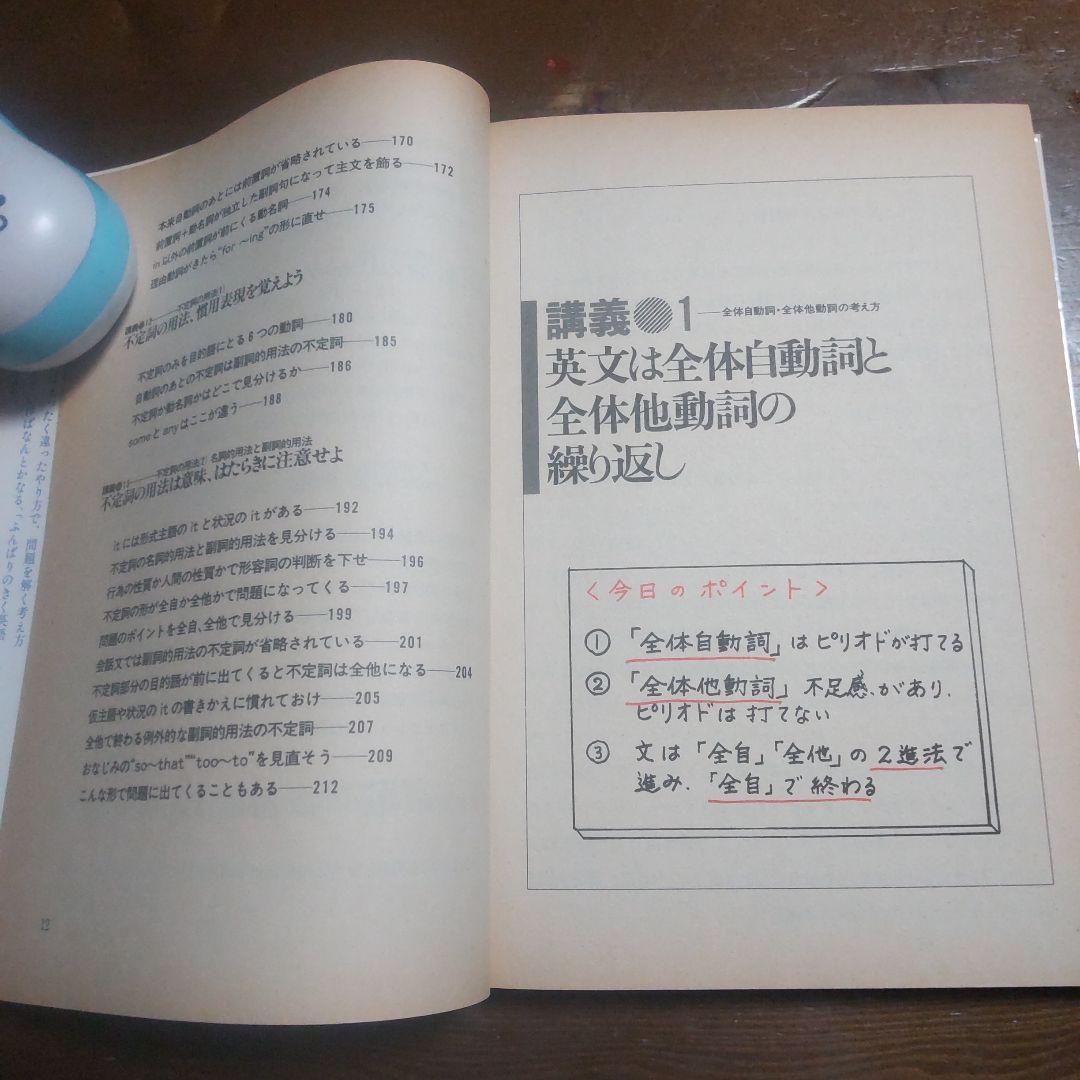 本来自動詞のあとには前置詞が省略されている——170
前置詞+動名詞が独立した副詞句になって主文を飾る——172
in以外の前置詞が前にくる動名詞——174
理由動詞がきたら“for ~ing”の形に直せ——175
不定詞の用法1
不定詞の用法、慣用表現を覚えよう
不定詞のみを目的語にとる6つの動詞——180
自動詞のあとの不定詞は副詞的用法の不定詞——185
不定詞か動名詞かはどこで見分けるか——186
someとanyはここが違う——188
不定詞の用法2 名詞的用法と副詞的用法
不定詞の用法は意味、はたらきに注意せよ
itには形式主題のitと状況のitがある——192
不定詞の名詞的用法と副詞的用法を見分ける——194
行為の性質か人間の性質かで形容詞の判断を下せ——196
不定詞の形が全自か全他かで問題になってくる——197
問題のポイントを全自、全他で見分ける——199
会話文では副詞的用法の不定詞が省略されている——201
不定詞部分の目的語が前に出てくると不定詞は全他になる——204
仮主題や状況のitの書きかえに慣れておけ——205
全他で終わる例外的な副詞的用法の不定詞——207
おなじみの“so~that”“too~to”を見直そう——209
こんな形で問題に出てくることもある——212
12
たく違ったやり方で、問題を解く考え方
ばなんとかなる、「ふんばりのきく英語
講義●1——全体自動詞・全体他動詞の考え方
英文は全体自動詞と
全体他動詞の
繰り返し
〈今日のポイント〉
① 「全体自動詞」はピリオドが打てる
② 「全体他動詞」不足感があり、
ピリオドは打てない
③ 文は「全自」「全他」の2進法で
進み、「全自」で終わる